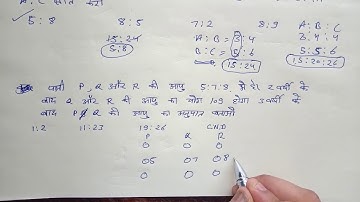 5 : 8    8 : 5    7 : 2    8 : 9    A : B : C
15:24    A : B = 3 : 4    3 : 4 : 4
5:8    B : C = 5 : 6    5 : 5 : 6
15:24    15:20:26
P, Q और R की आयु 5:7:8 में है। 2 वर्षों के
बाद Q और R की आयु का योग 109 होगा। 3 वर्षों के
बाद P, Q की आयु का अनुपात बताओ
1:2    11:23    19:26    C.N.D
P    Q    R
0    0    0
05    07    08
0    0    0